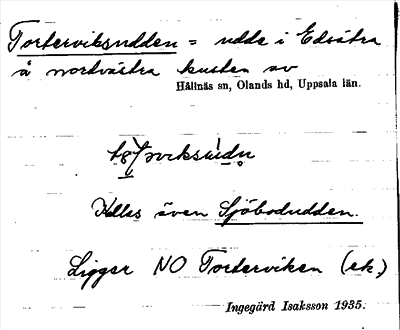 Torterviksudden = udde i Edsätra
å nordvästra kusten av
Hållnäs sn, Olands hd, Uppsala län.
Kallas även Sjöbodudden.
Ligger NO Torterviken (ek.)
Ingegärd Isaksson 1935.